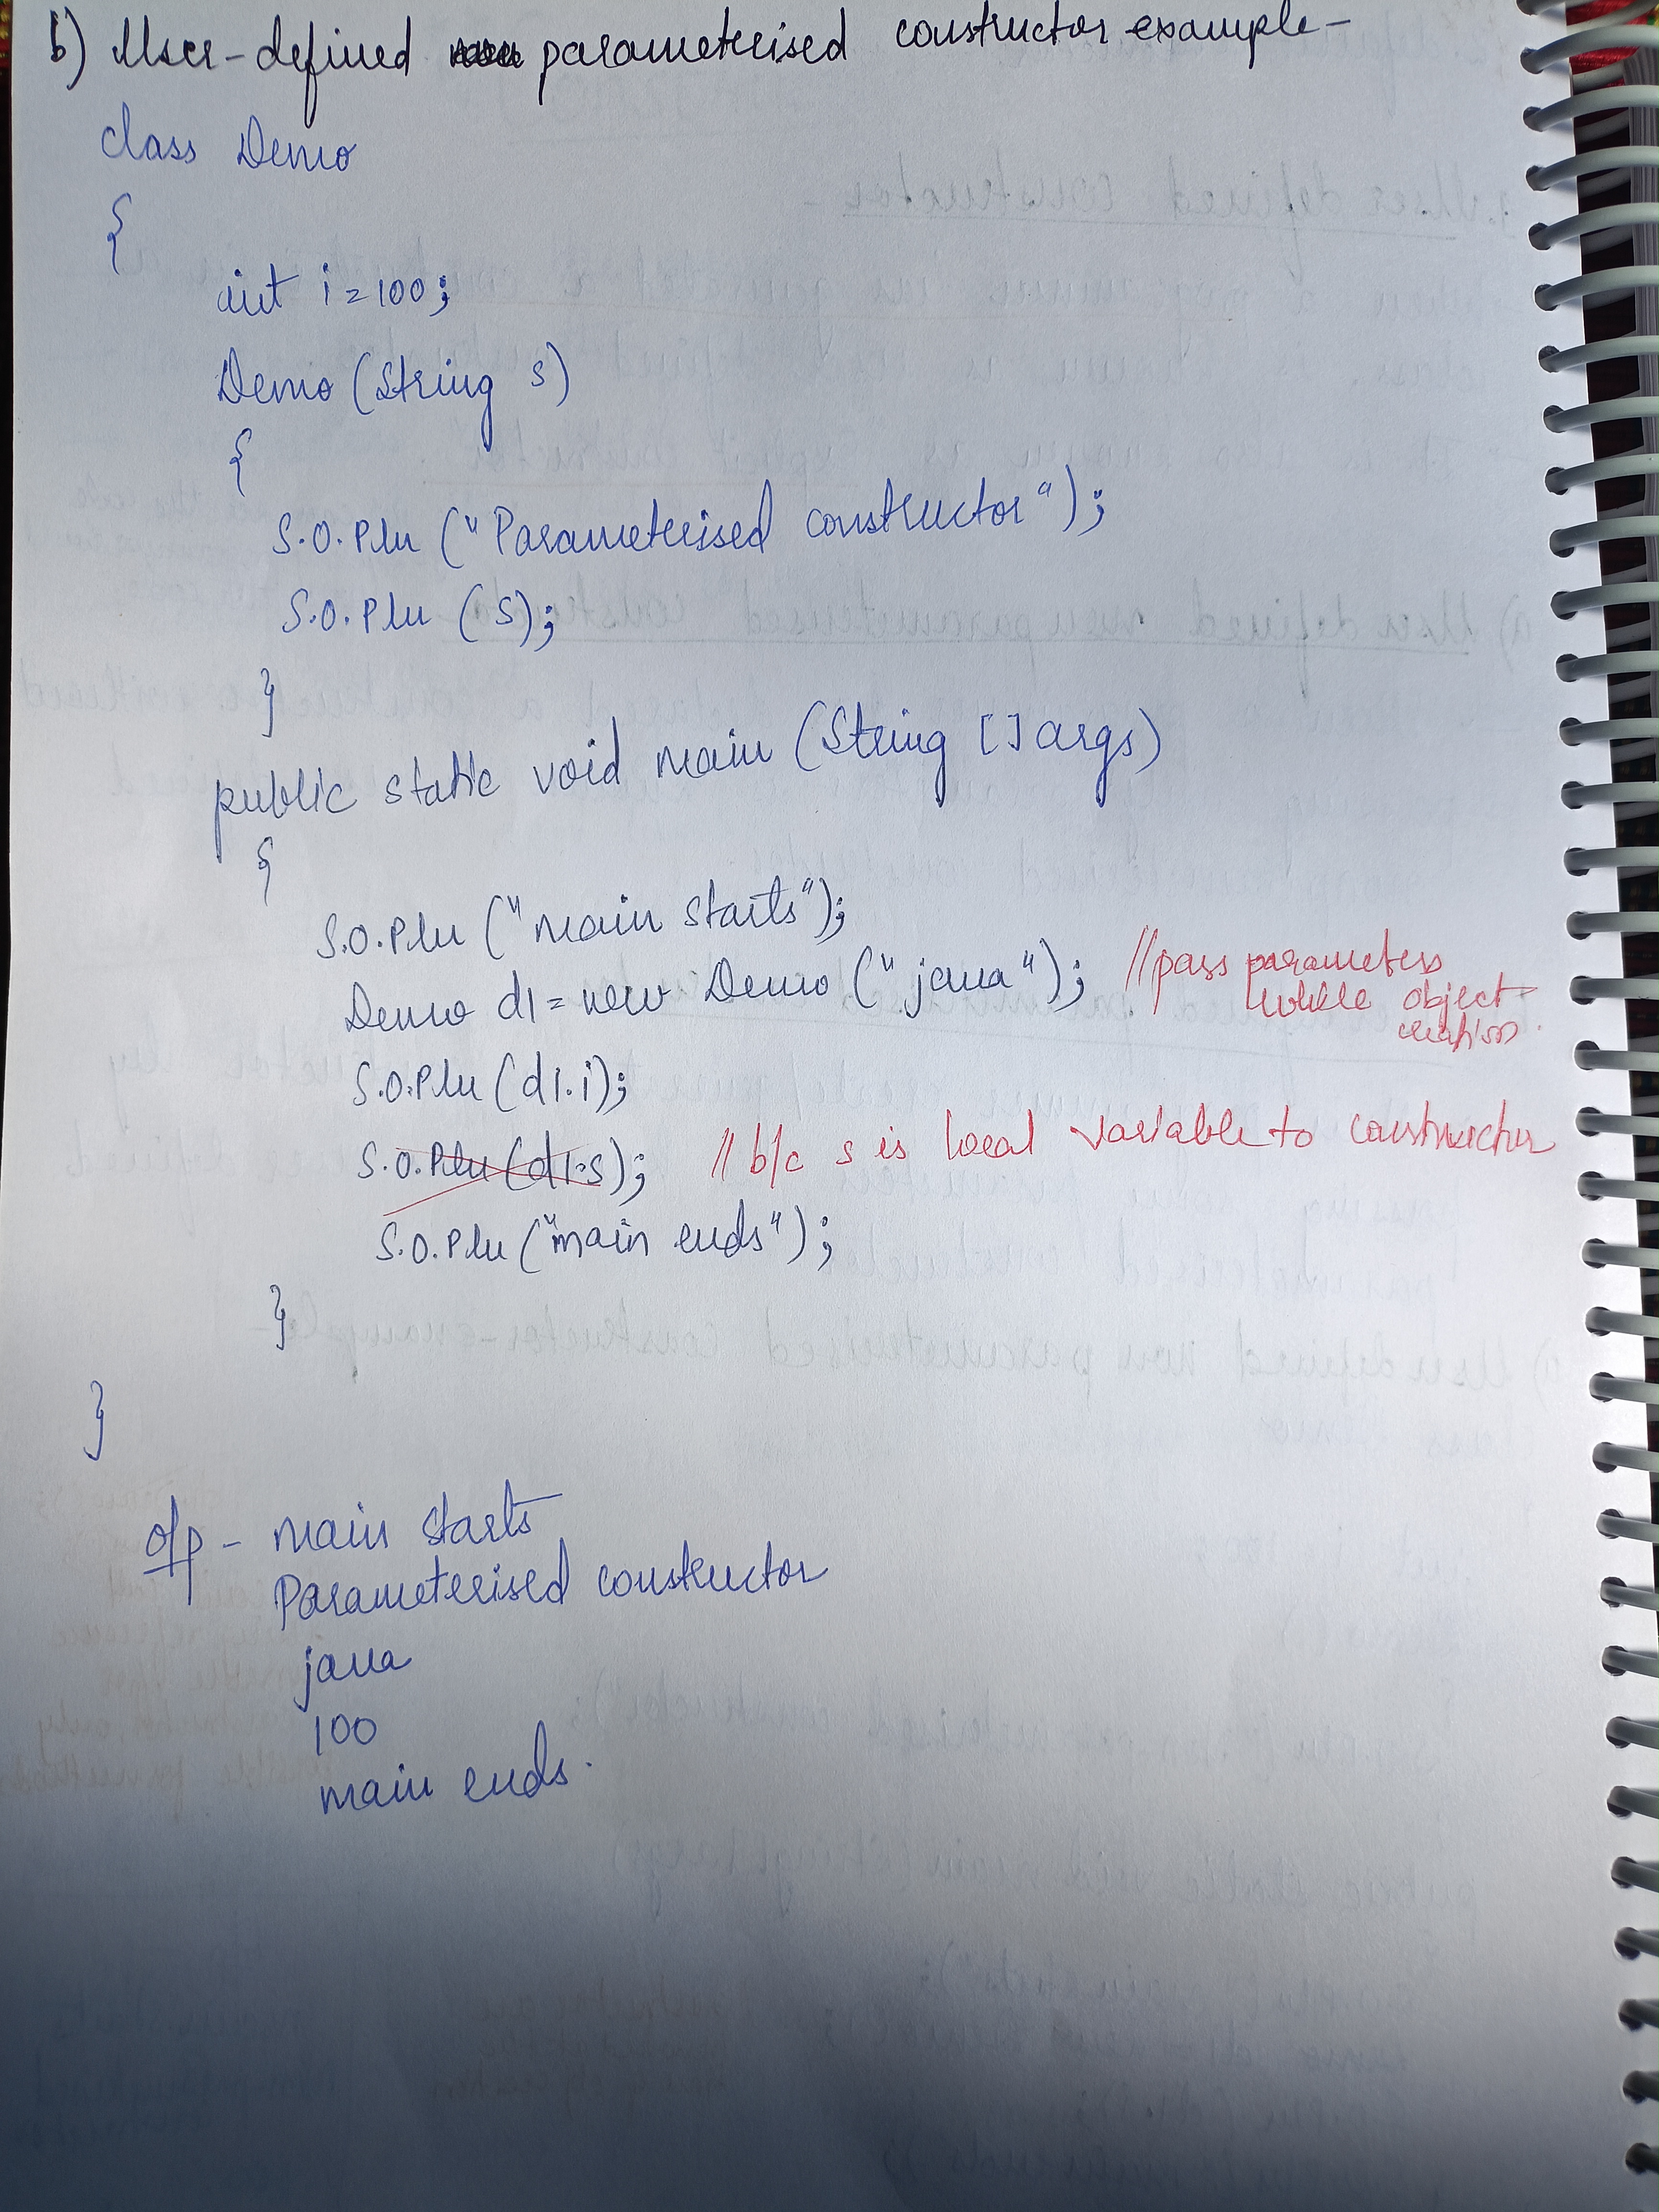 b) User-defined parameterised constructor example-
class Demo
{
int i=100;
Demo (String s)
{
S.O.Pln ("Parameterised constructor");
S.O.Pln (s);
}
public static void main (String []args)
{
S.O.Pln ("main starts");
Demo d1=new Demo ("java"); //pass parameters
while object
creation.
S.O.Pln (d1.i);
S.O.Pln (d1.s); // b/c s is local variable to constructor
S.O.Pln ("main ends");
}
}
o/p - main starts
Parameterised constructor
java
100
main ends.